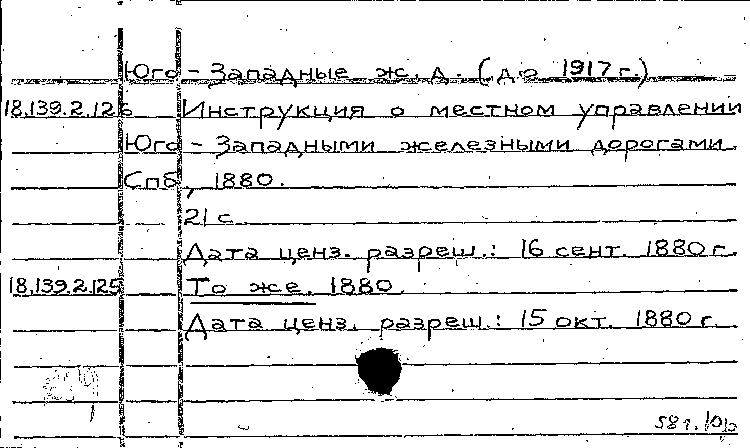 Юго-Западные ж. д. (до 1917 г.)
18.139.2.126 Инструкция о местном управлении
Юго-Западными железными дорогами.
Спб, 1880.
21 с.
Дата ценз. разреш.: 16 сент. 1880 г.
18.139.2.125 То же. 1880.
Дата ценз. разреш.: 15 окт. 1880 г.